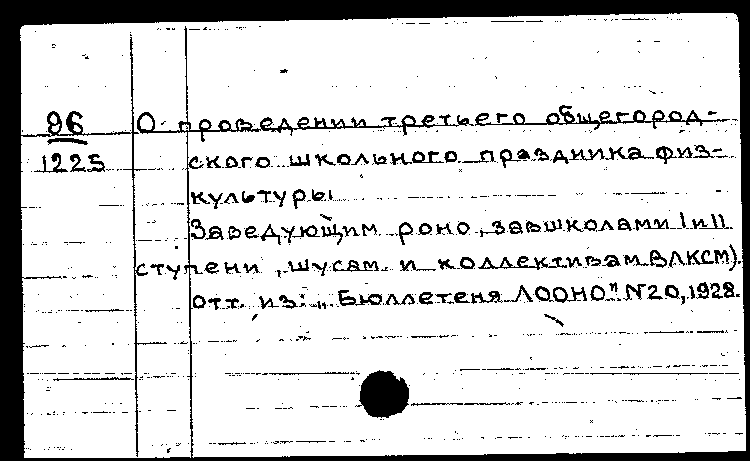 96 О проведении третьего общегород-
1225 ского школьного праздника физ-
культуры
Заведующим роно, завшколами I и II
ступени, шусам и коллективам ВЛКСМ).
Отт. из: „Бюллетеня ЛООНО" №20, 1928.